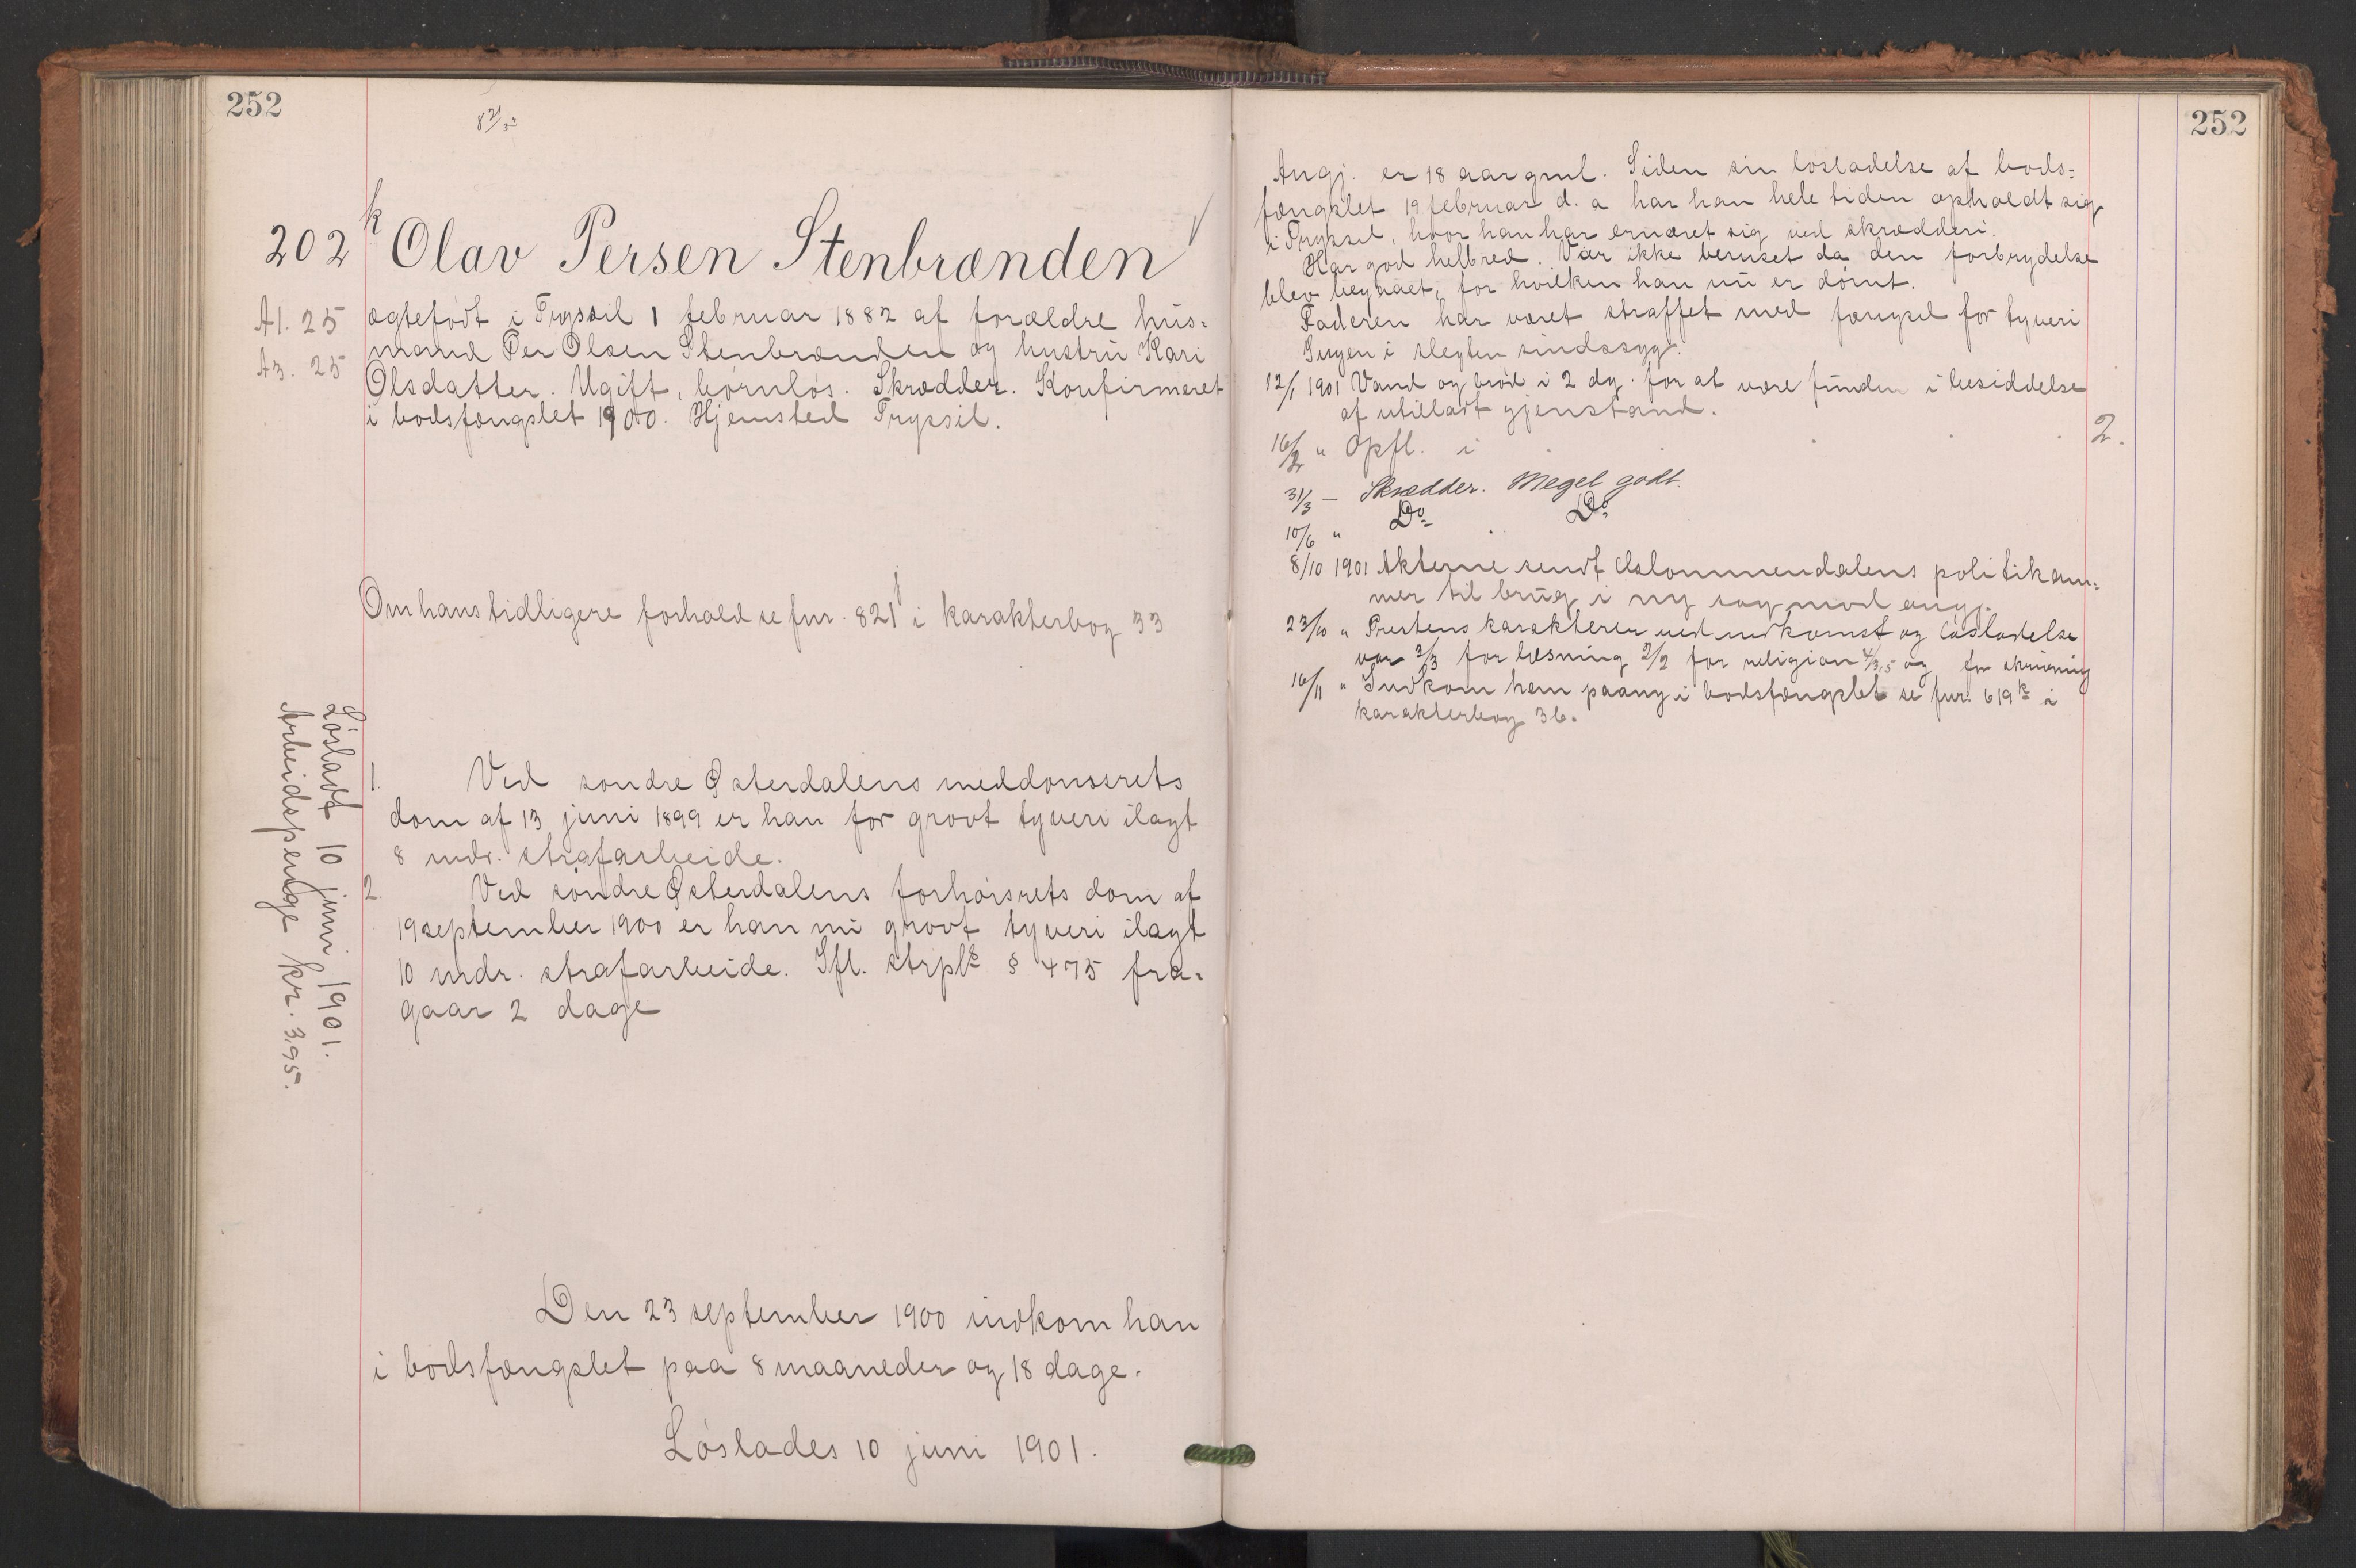 252
202 k Olav Persen Stenbrænden
A1. 25
A3. 25
ægtefødt i Trysil 1 februar 1882 af forældre hus=
mand Per Olsen Stenbrænden og hustru Kari
Olsdatter. Ugift, børnløs. Skrædder. Konfirmeret
i bodsfængslet 1900. Hjemsted Trysil.
Om hans tidligere forhold se fnr. 821 j i karakterbog 33
Løsladt 10 juni 1901.
Arbeidspenge kr. 3,95.
1. Ved søndre Østerdalens meddomsrets
dom af 13 juni 1899 er han for grovt tyveri ilagt
8 mdr. strafarbeide.
2. Ved søndre Østerdalens forhørsrets dom af
19 september 1900 er han nu grovt tyveri ilagt
10 mdr. strafarbeide. Ifl. strpl § 475 fra=
gaar 2 dage
Den 23 september 1900 indkom han
i bodsfængslet paa 8 maaneder og 18 dage.
Løslades 10 juni 1901.
252
Angj. er 18 aar gml. Siden sin løsladelse af bods=
fængslet 19 februar d. a har han hele tiden opholdt sig
i Trysil, hvor han har ernæret sig ved skrædderi.
Har god helbred. Var ikke beruset da den forbrydelse
blev begaaet, for hvilken han nu er dømt.
Faderen har været straffet med fængsel for tyveri
Ingen i slegten sindssyg.
12/1 1901 Vand og brød i 2 dg. for at være funden i besiddelse
af utilladt gjenstand.
16/2 " Opfl. i . . . 2.
31/3 – Skrædder. Meget godt.
10/6 " Do Do
8/10 1901 Akterne sendt Solommendalens politikam=
mer til brug i ny sag mod angj.
23/10 " Prestens karakterer ved indkomst og løsladelse
var 3/3 for læsning 2/2 for religion 4/3,5 og for skrivning
16/11 " Indkom han paany i bodsfængslet se fnr. 619 k i
karakterbog 36.